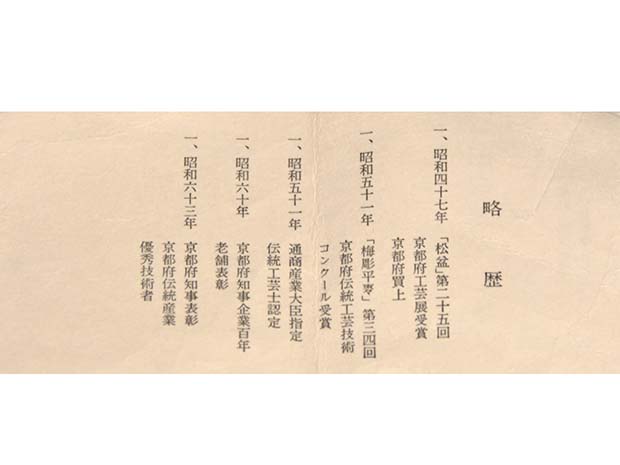 略歴
一、昭和四十七年 「松盆」第二十五回
京都府工芸展受賞
京都府買上
一、昭和五十一年 「梅彫平棗」第三四回
京都府伝統工芸技術
コンクール受賞
一、昭和五十一年 通商産業大臣指定
伝統工芸士認定
一、昭和六十年 京都府知事企業百年
老舗表彰
一、昭和六十三年 京都府知事表彰
京都府伝統産業
優秀技術者